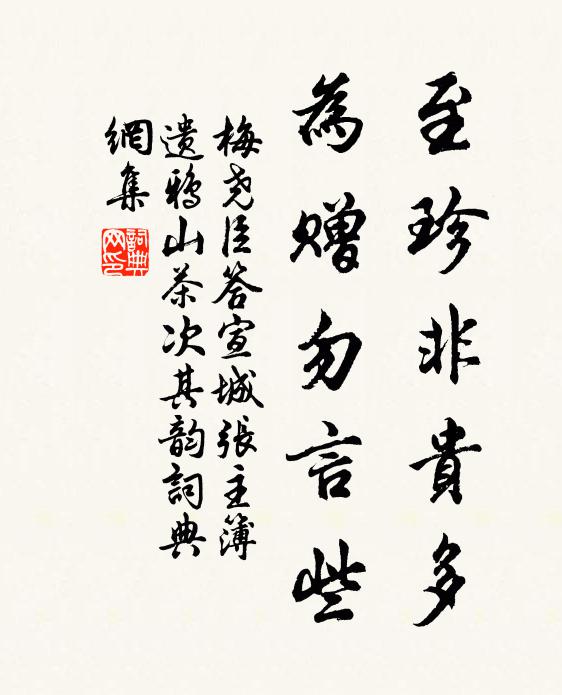 至珍非貴多
為贈勿言些
梅尧臣答宣城張主簿
遺鴉山茶次其韵詞典
網集
詞典
网印